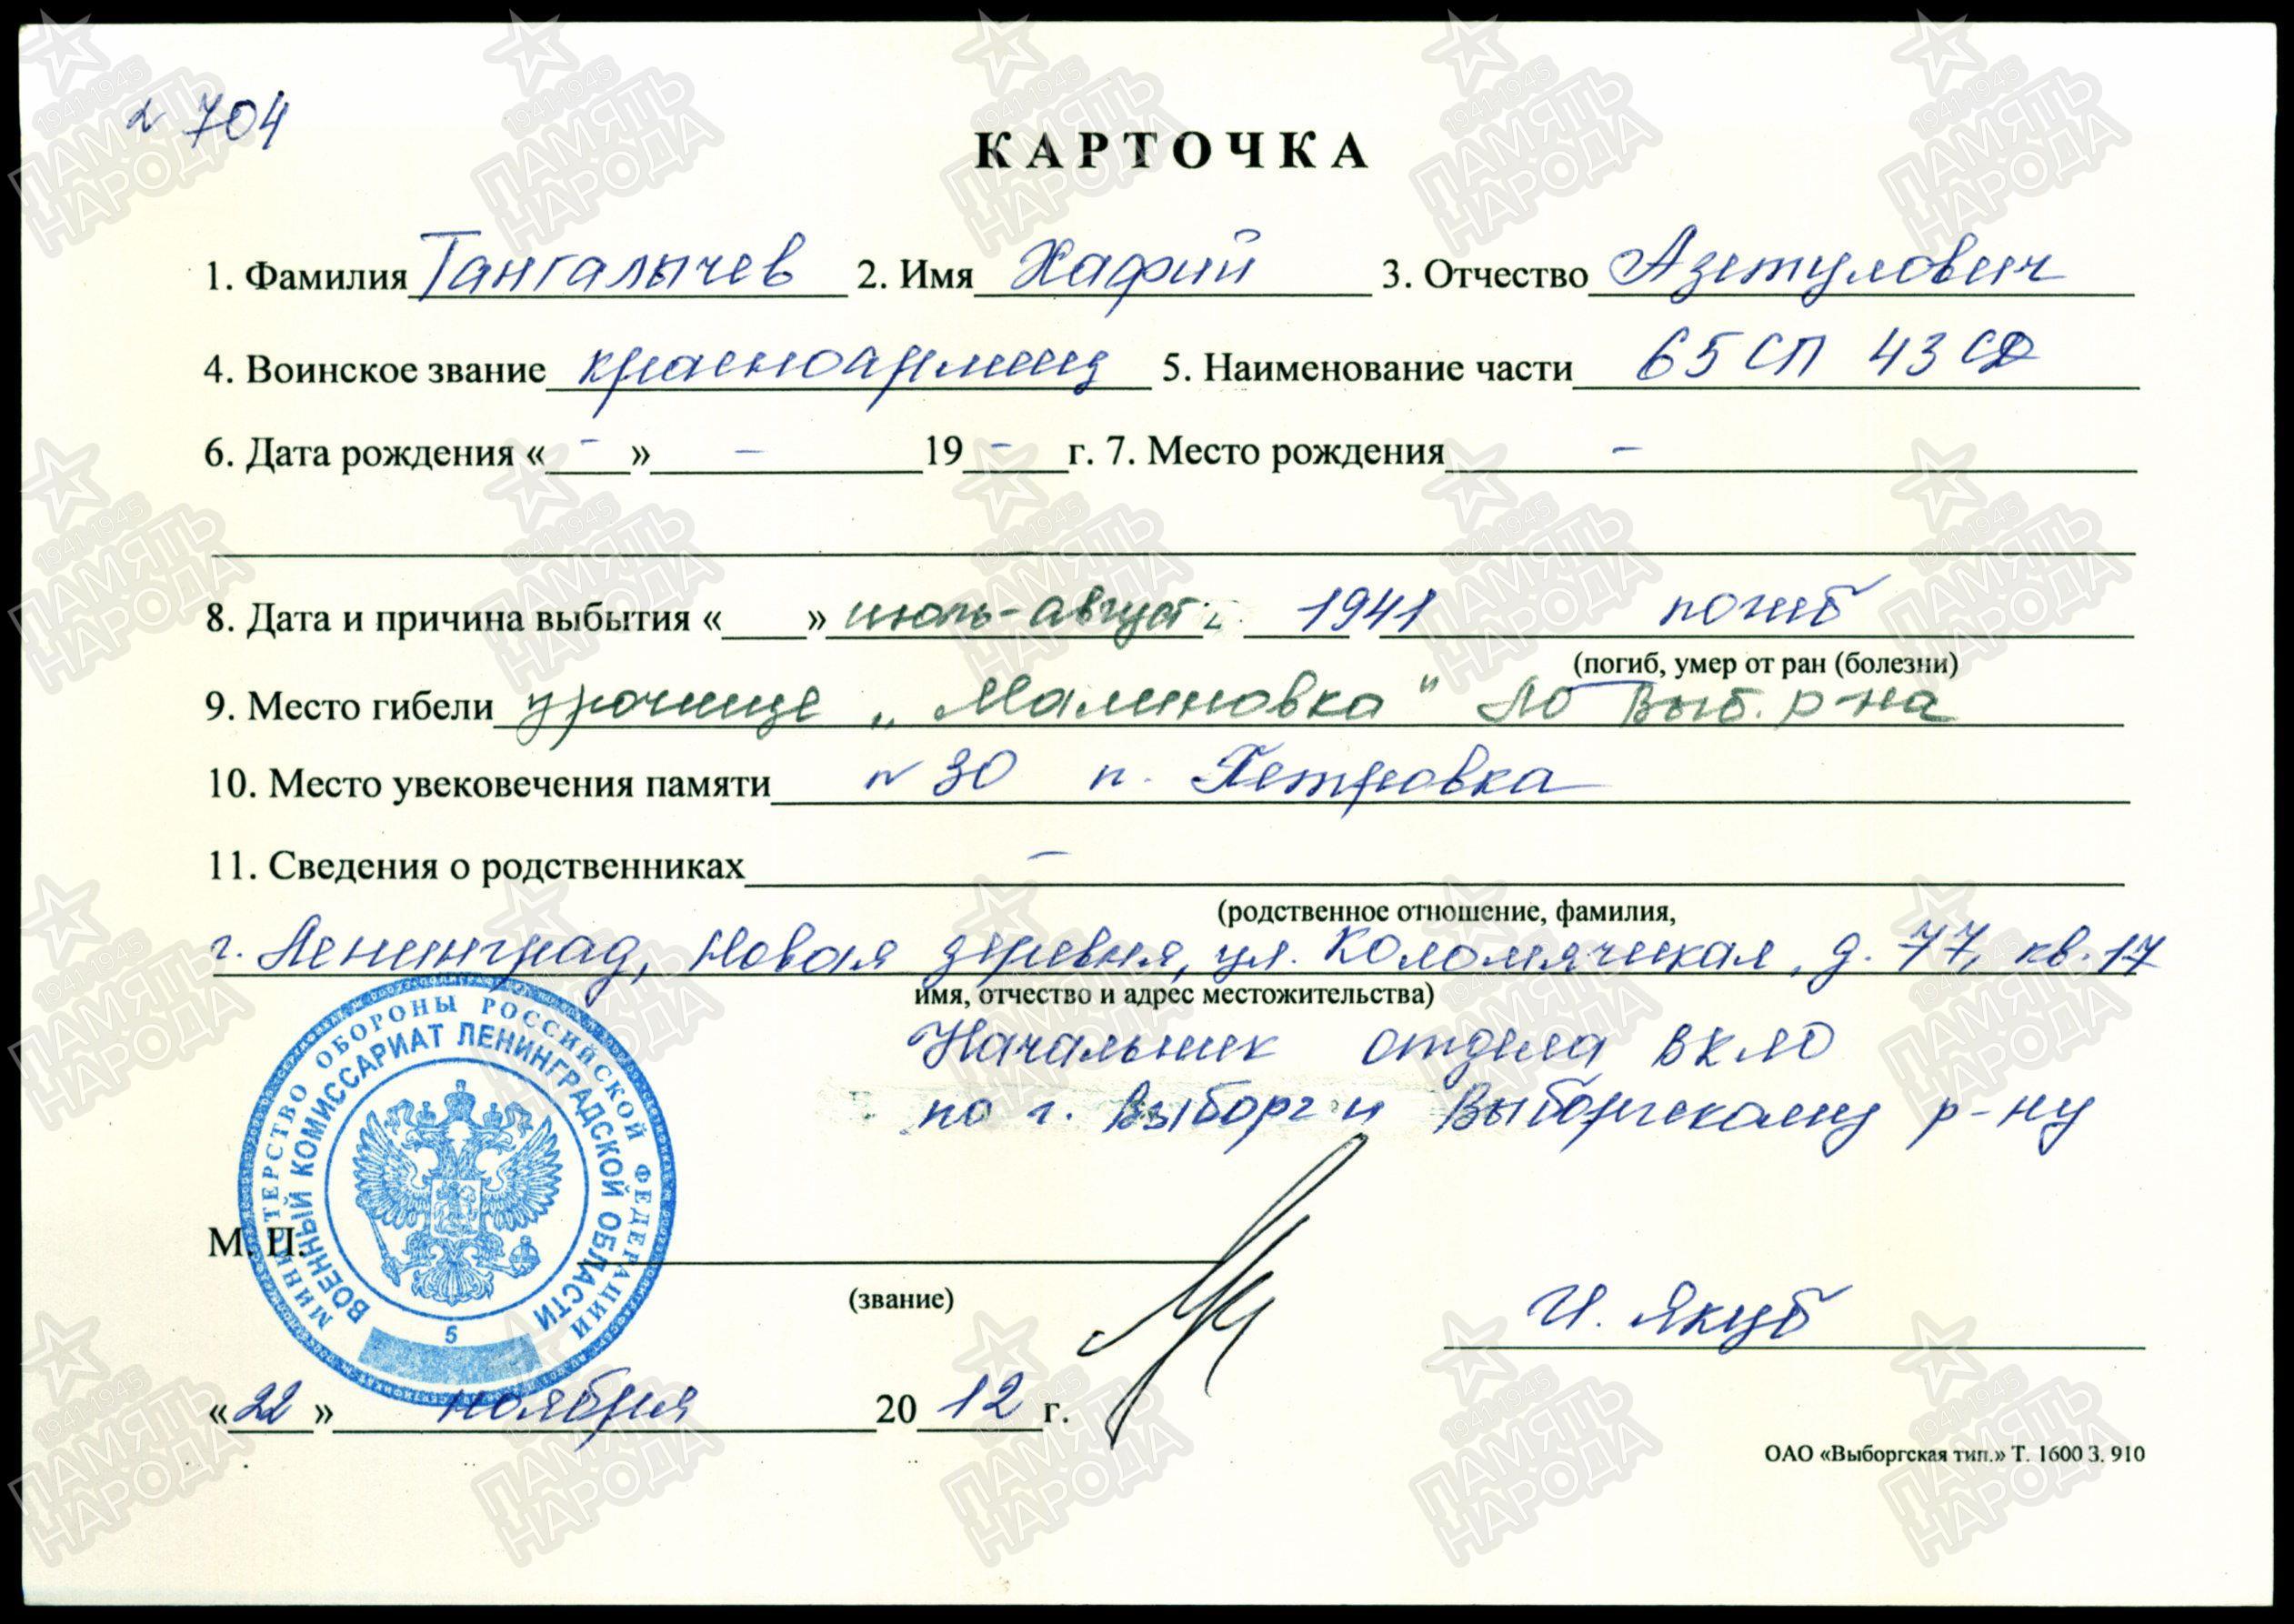 № 704
КАРТОЧКА
1. Фамилия Тангалычев 2. Имя Хафий 3. Отчество Азетулович
4. Воинское звание красноармеец 5. Наименование части 65 СП 43 СД
6. Дата рождения « - » - 19 - г. 7. Место рождения -
8. Дата и причина выбытия « » июль-август 1941 погиб
(погиб, умер от ран (болезни)
9. Место гибели урочище „Малиновка" ЛО Выб. р-на
10. Место увековечения памяти № 30 п. Петровка
11. Сведения о родственниках -
(родственное отношение, фамилия,
г. Ленинград, Новая деревня, ул. Коломяжская, д. 77, кв. 17
имя, отчество и адрес местожительства)
Начальник отдела ВКЛО
по г. Выборг и Выборгскому р-ну
МИНИСТЕРСТВО ОБОРОНЫ РОССИЙСКОЙ ФЕДЕРАЦИИ
ВОЕННЫЙ КОМИССАРИАТ ЛЕНИНГРАДСКОЙ ОБЛАСТИ
5
М. П.
(звание)
И. Якуб
«22» ноября 2012 г.
ОАО «Выборгская тип.» Т. 1600 З. 910
1941-1945
ПАМЯТЬ
НАРОДА